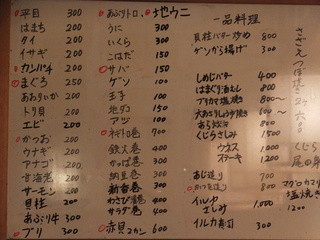 平目 300
はまち 200
タイ 300
イサギ 200
カンパチ 200
まぐろ 250
あおりいか 200
トリ貝 200
エビ 200
かつお 200
ウナギ 300
アナゴ 200
甘海老 200
サーモン 200
貝柱 200
あぶり牛 300
ブリ 300
あぶりトロ
地ウニ
うに 300
いくら 300
こはだ 150
サバ 150
ゲソ 100
玉子 100
地ダコ 150
アジ 100
ネギトロ巻 700
鉄火巻 400
かっぱ巻 300
納豆巻 300
新香巻 300
わさび巻 400
サラダ巻 400
赤貝 600
一品料理
貝柱バター炒め 800
ゲソから揚げ 300
しめじバター 400
はまぐり酒むし 800
ブリカマ塩焼き 800〜
くじらさしみ 1500
ステーキ 1200
あじ造り 700
かつを造り 800
イルカさしみ 1000
イルカ寿司 300
さざえつぼ焼き
くじら
尾の身
マグロカマ
塩焼き
1200